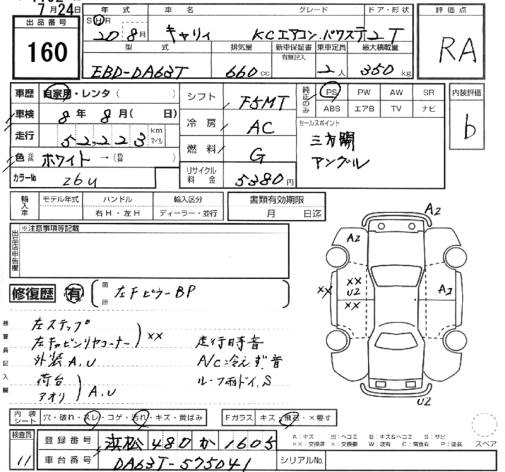 7月24日
出品番号 160
年式 車名 グレード ドア・形状
S H R 20 年 8月 キャリィ KCエアコン.パワステ 2T
型式 排気量 新車保証書 乗車定員 最大積載量
有無記入
EBD-DA63T 660cc 2人 350kg
評価点
RA
内装評価
b
車歴 自家用・レンタ( )
車検 8年 8月( 日)
走行 52,223 km マイル
色 ホワイト →( )
カラーNo 26U
シフト F5MT
冷房 AC
燃料 G
リサイクル料金 5380円
純正のみ
PS PW AW SR
ABS エアB TV ナビ
セールスポイント
三方開
アングル
輸入車 モデル年式 ハンドル 輸入区分
右H・左H ディーラー・並行
書類有効期限
月 日迄
出品店申告欄
※注意事項等記載
修復歴 有 箇所 左FピラーBP
検査員記入欄
左ステップ
左キャビンリヤコーナー XX
外装A,U
荷台
アオリ A,U
走行時音
A/C冷えず音
ルーフ雨ドイ,S
A2
A2
XX
XX
U2
A2
A3
U2
内装シート 穴・破れ・スレ・コゲ・汚れ・キズ・黄ばみ
Fガラス キズ・飛石・X要す
A:キズ U:ヘコミ B:キズ&ヘコミ S:サビ
XX:交換済 X:要交換 W:波有 C:腐食有 P:塗装
スペア
検査員 11
登録番号 浜松 480 か 1605
車台番号 DA63T-575041
シリアルNo.